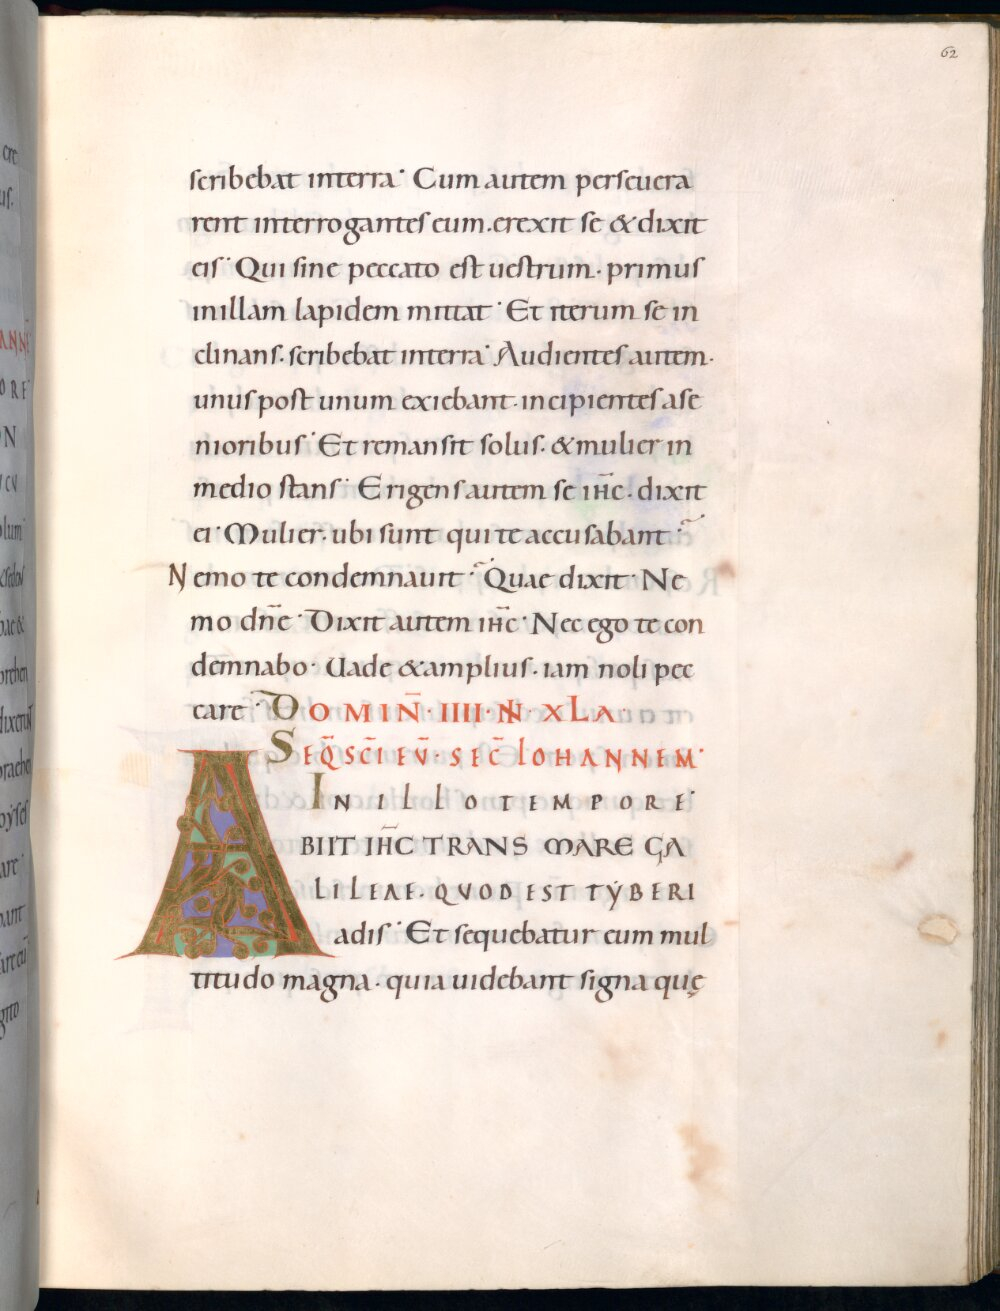 62
scribebat interra· Cum autem perseuera
rent interrogantes eum. erexit se & dixit
eis· Qui sine peccato est uestrum· primus
inillam lapidem mittat· Et iterum se in
clinans. scribebat interra· Audientes autem·
unus post unum exiebant· incipientes ase
nioribus· Et remansit solus· & mulier in
medio stans· Erigens autem se ih̅c· dixit
ei· Mulier· ubi sunt qui te accusabant·
Nemo te condemnauit· Quae dixit· Ne
mo dn̅e· Dixit autem ih̅c· Nec ego te con
demnabo· Uade & amplius· iam noli pec
care· DOMIN̅· IIII· IN XLA·
SEQ̅ SC̅I EU̅· SEC̅ IOHANNEM·
IN ILLO TEMPORE·
ABIIT IH̅C TRANS MARE GA
LILEAE· QUOD EST TYBERI
adis· Et sequebatur eum mul
titudo magna· quia uidebant signa quę